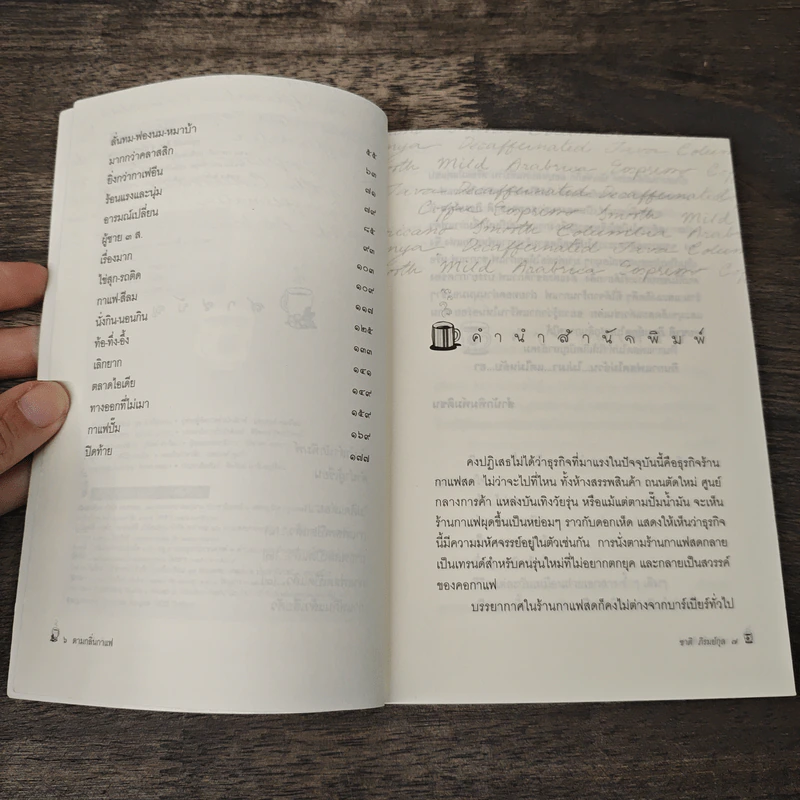 สั่นทม-ฟองนม-หมาบ้า
มากกว่าคลาสสิก ๕๕
ยิ่งกว่ากาเฟอีน ๖๓
ร้อนแรงและนุ่ม ๗๑
อารมณ์เปลี่ยน ๗๙
ผู้ชาย ๓ ส. ๘๕
เรื่องมาก ๙๓
ไข่สุก-รถติด ๑๐๓
กาแฟ-สีลม ๑๐๙
นั่งกิน-นอนกิน ๑๑๗
ท้อ-ทึ่ง-อึ้ง ๑๒๕
เลิกยาก ๑๓๓
ตลาดไอเดีย ๑๔๑
ทางออกที่ไม่เมา ๑๔๙
กาแฟปั๊ม ๑๕๙
ปิดท้าย ๑๖๙
๑๗๗
๖ ตามกลิ่นกาแฟ
Decaffeinated Java Colum
ooth Mild Arabica Espresso Co
Java Decaffeinated Decaffeinated
Coffee Espresso Smooth Mild
Smooth Columbia Arab
nya Decaffeinated Java Colum
ooth Mild Arabica Espresso Co
คำนำสำนักพิมพ์
คงปฏิเสธไม่ได้ว่าธุรกิจที่มาแรงในปัจจุบันนี้คือธุรกิจร้าน
กาแฟสด ไม่ว่าจะไปที่ไหน ทั้งห้างสรรพสินค้า ถนนตัดใหม่ ศูนย์
กลางการค้า แหล่งบันเทิงวัยรุ่น หรือแม้แต่ตามปั๊มน้ำมัน จะเห็น
ร้านกาแฟผุดขึ้นเป็นหย่อมๆ ราวกับดอกเห็ด แสดงให้เห็นว่าธุรกิจ
นี้มีความมหัศจรรย์อยู่ในตัวเช่นกัน การนั่งตามร้านกาแฟสดกลาย
เป็นเทรนด์สำหรับคนรุ่นใหม่ที่ไม่อยากตกยุค และกลายเป็นสวรรค์
ของคอกาแฟ
บรรยากาศในร้านกาแฟสดก็คงไม่ต่างจากบาร์เบียร์ทั่วไป
ชาติ ภิรมย์กุล ๗